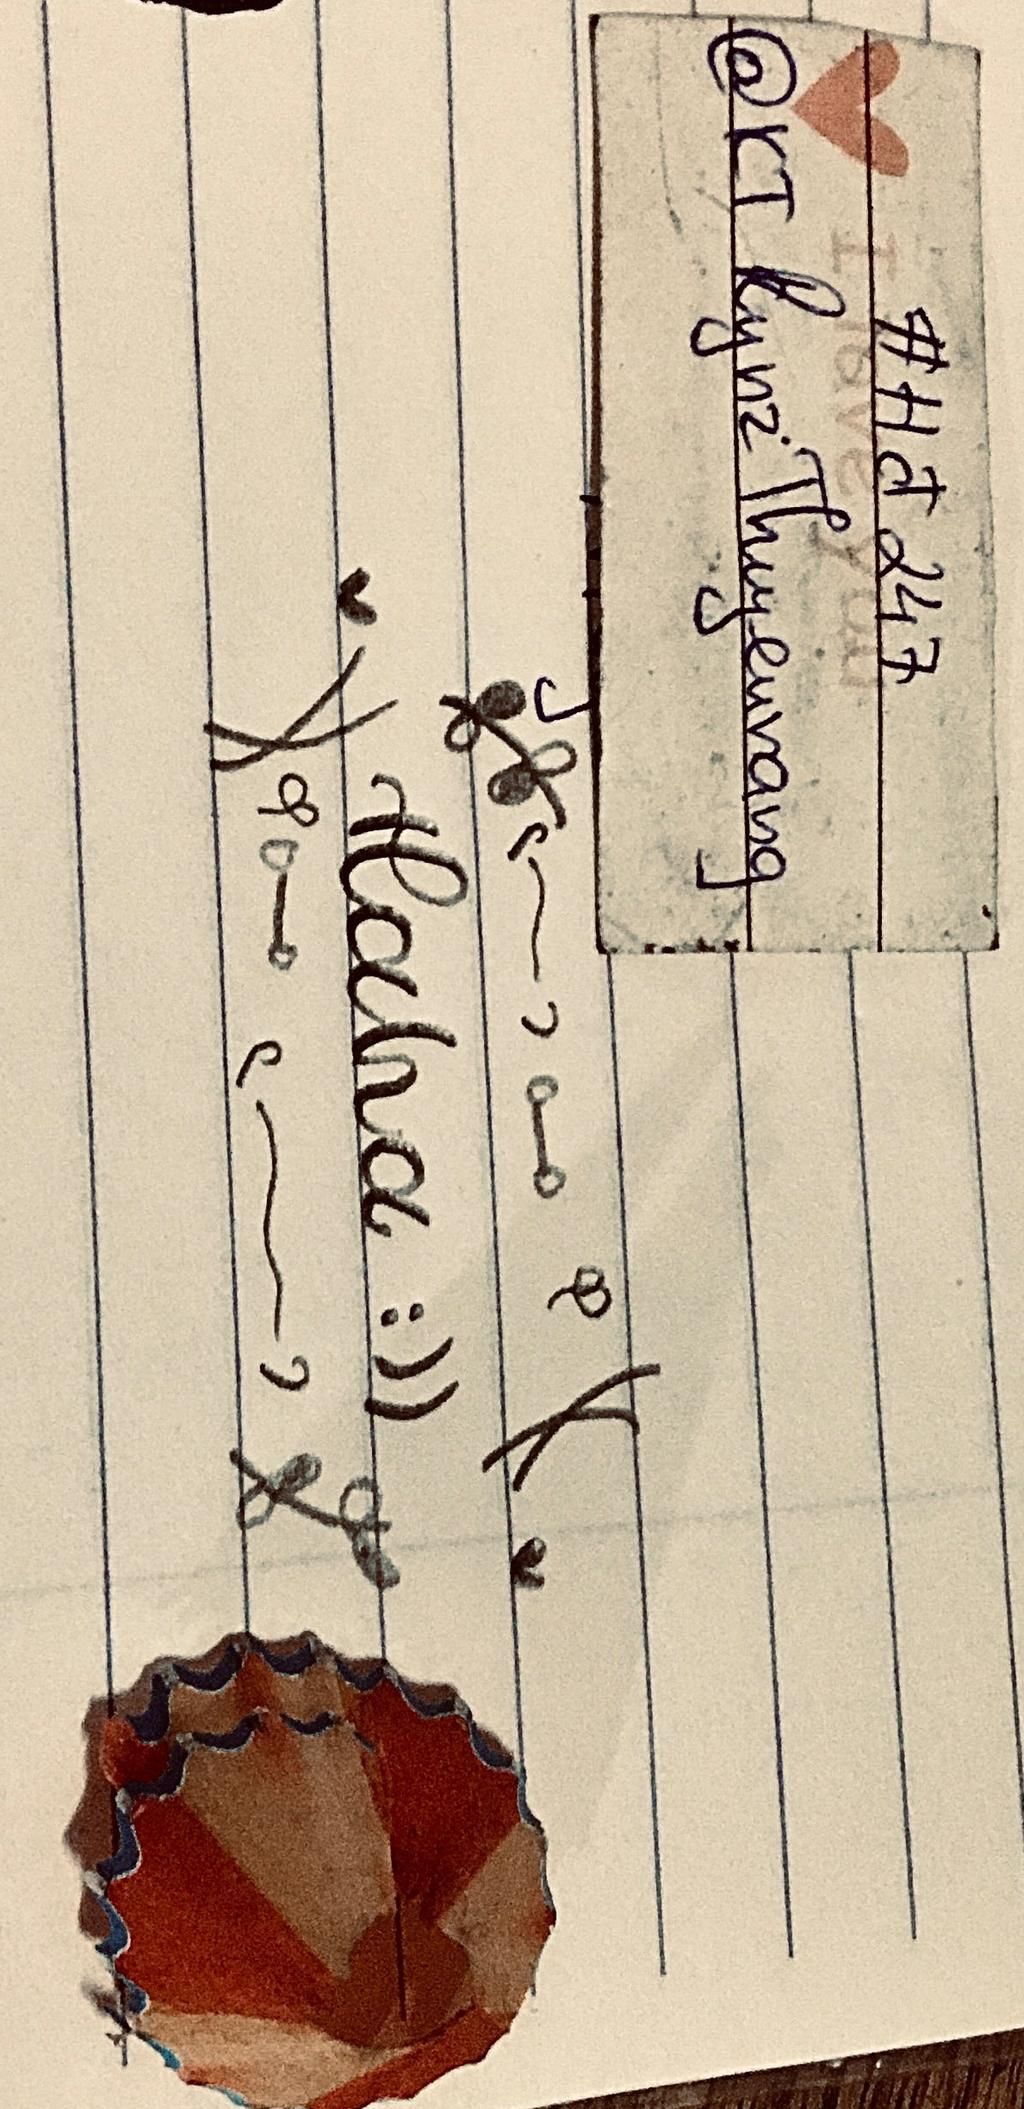 #HJ 247
@KT Rynz.Thuy-enrang
I Love You
Halna :))